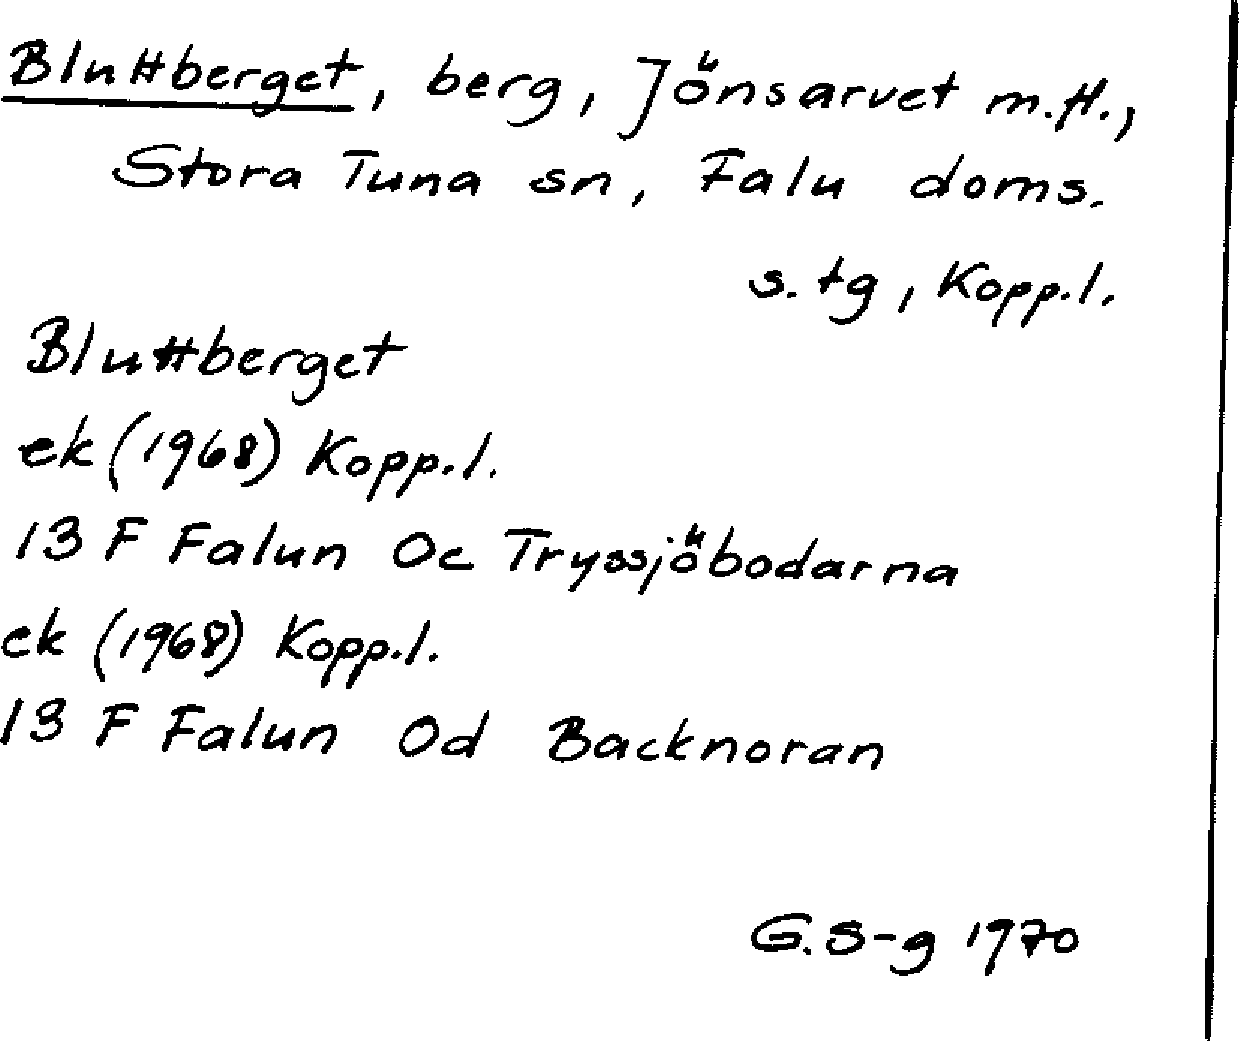 Bluttberget, berg, Jönsarvet m.fl.,
Stora Tuna sn, Falu doms.
s. tg, Kopp.l.
Bluttberget
ek (1968) Kopp.l.
13 F Falun Oc Tryssjöbodarna
ek (1968) Kopp.l.
13 F Falun Od Backnoran
G. S-g 1970